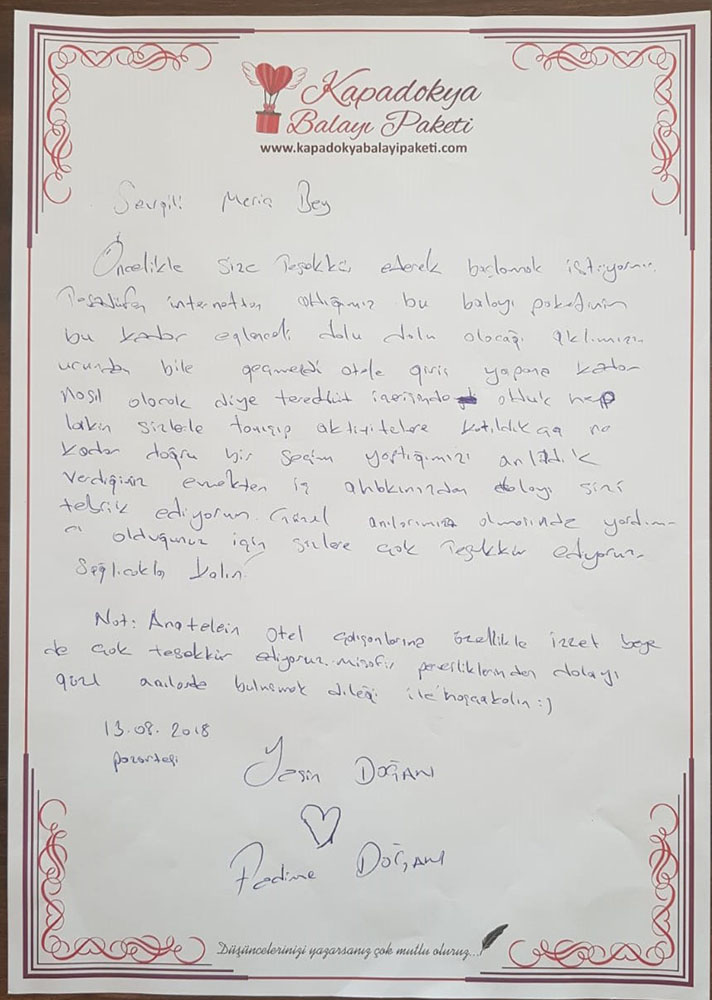 Kapadokya
Balayı Paketi
www.kapadokyabalayipaketi.com
Sevgili Meriç Bey
Öncelikle size Teşekkür ederek başlamak istiyorum.
Tesadüfen internetten aldığımız bu balayı paketinin
bu kadar eğlenceli dolu dolu olacağı aklımızın
ucundan bile geçmezdi otele giriş yapana kadar
nasıl olacak diye tereddüt içerisinde olduk hep
lakin sizlerle tanışıp aktivitelere katıldıkça ne
kadar doğru bir seçim yaptığımızı anladık
verdiğiniz emekten iş ahlakınızdan dolayı sizi
tebrik ediyorum. Güzel anılarımız olmasında yardım-
cı olduğunuz için sizlere çok Teşekkür ediyoruz.
Sağlıcakla Kalın
Not: Anatelein otel çalışanlarına özellikle izzet beye
de çok teşekkür ediyoruz. misafir perverliklerinden dolayı
güzel anılarda buluşmak dileği ile hoşçakalın :)
13.08.2018
pazartesi
Yasin DOĞAN
Fadime DOĞAN
Düşüncelerinizi yazarsanız çok mutlu oluruz...